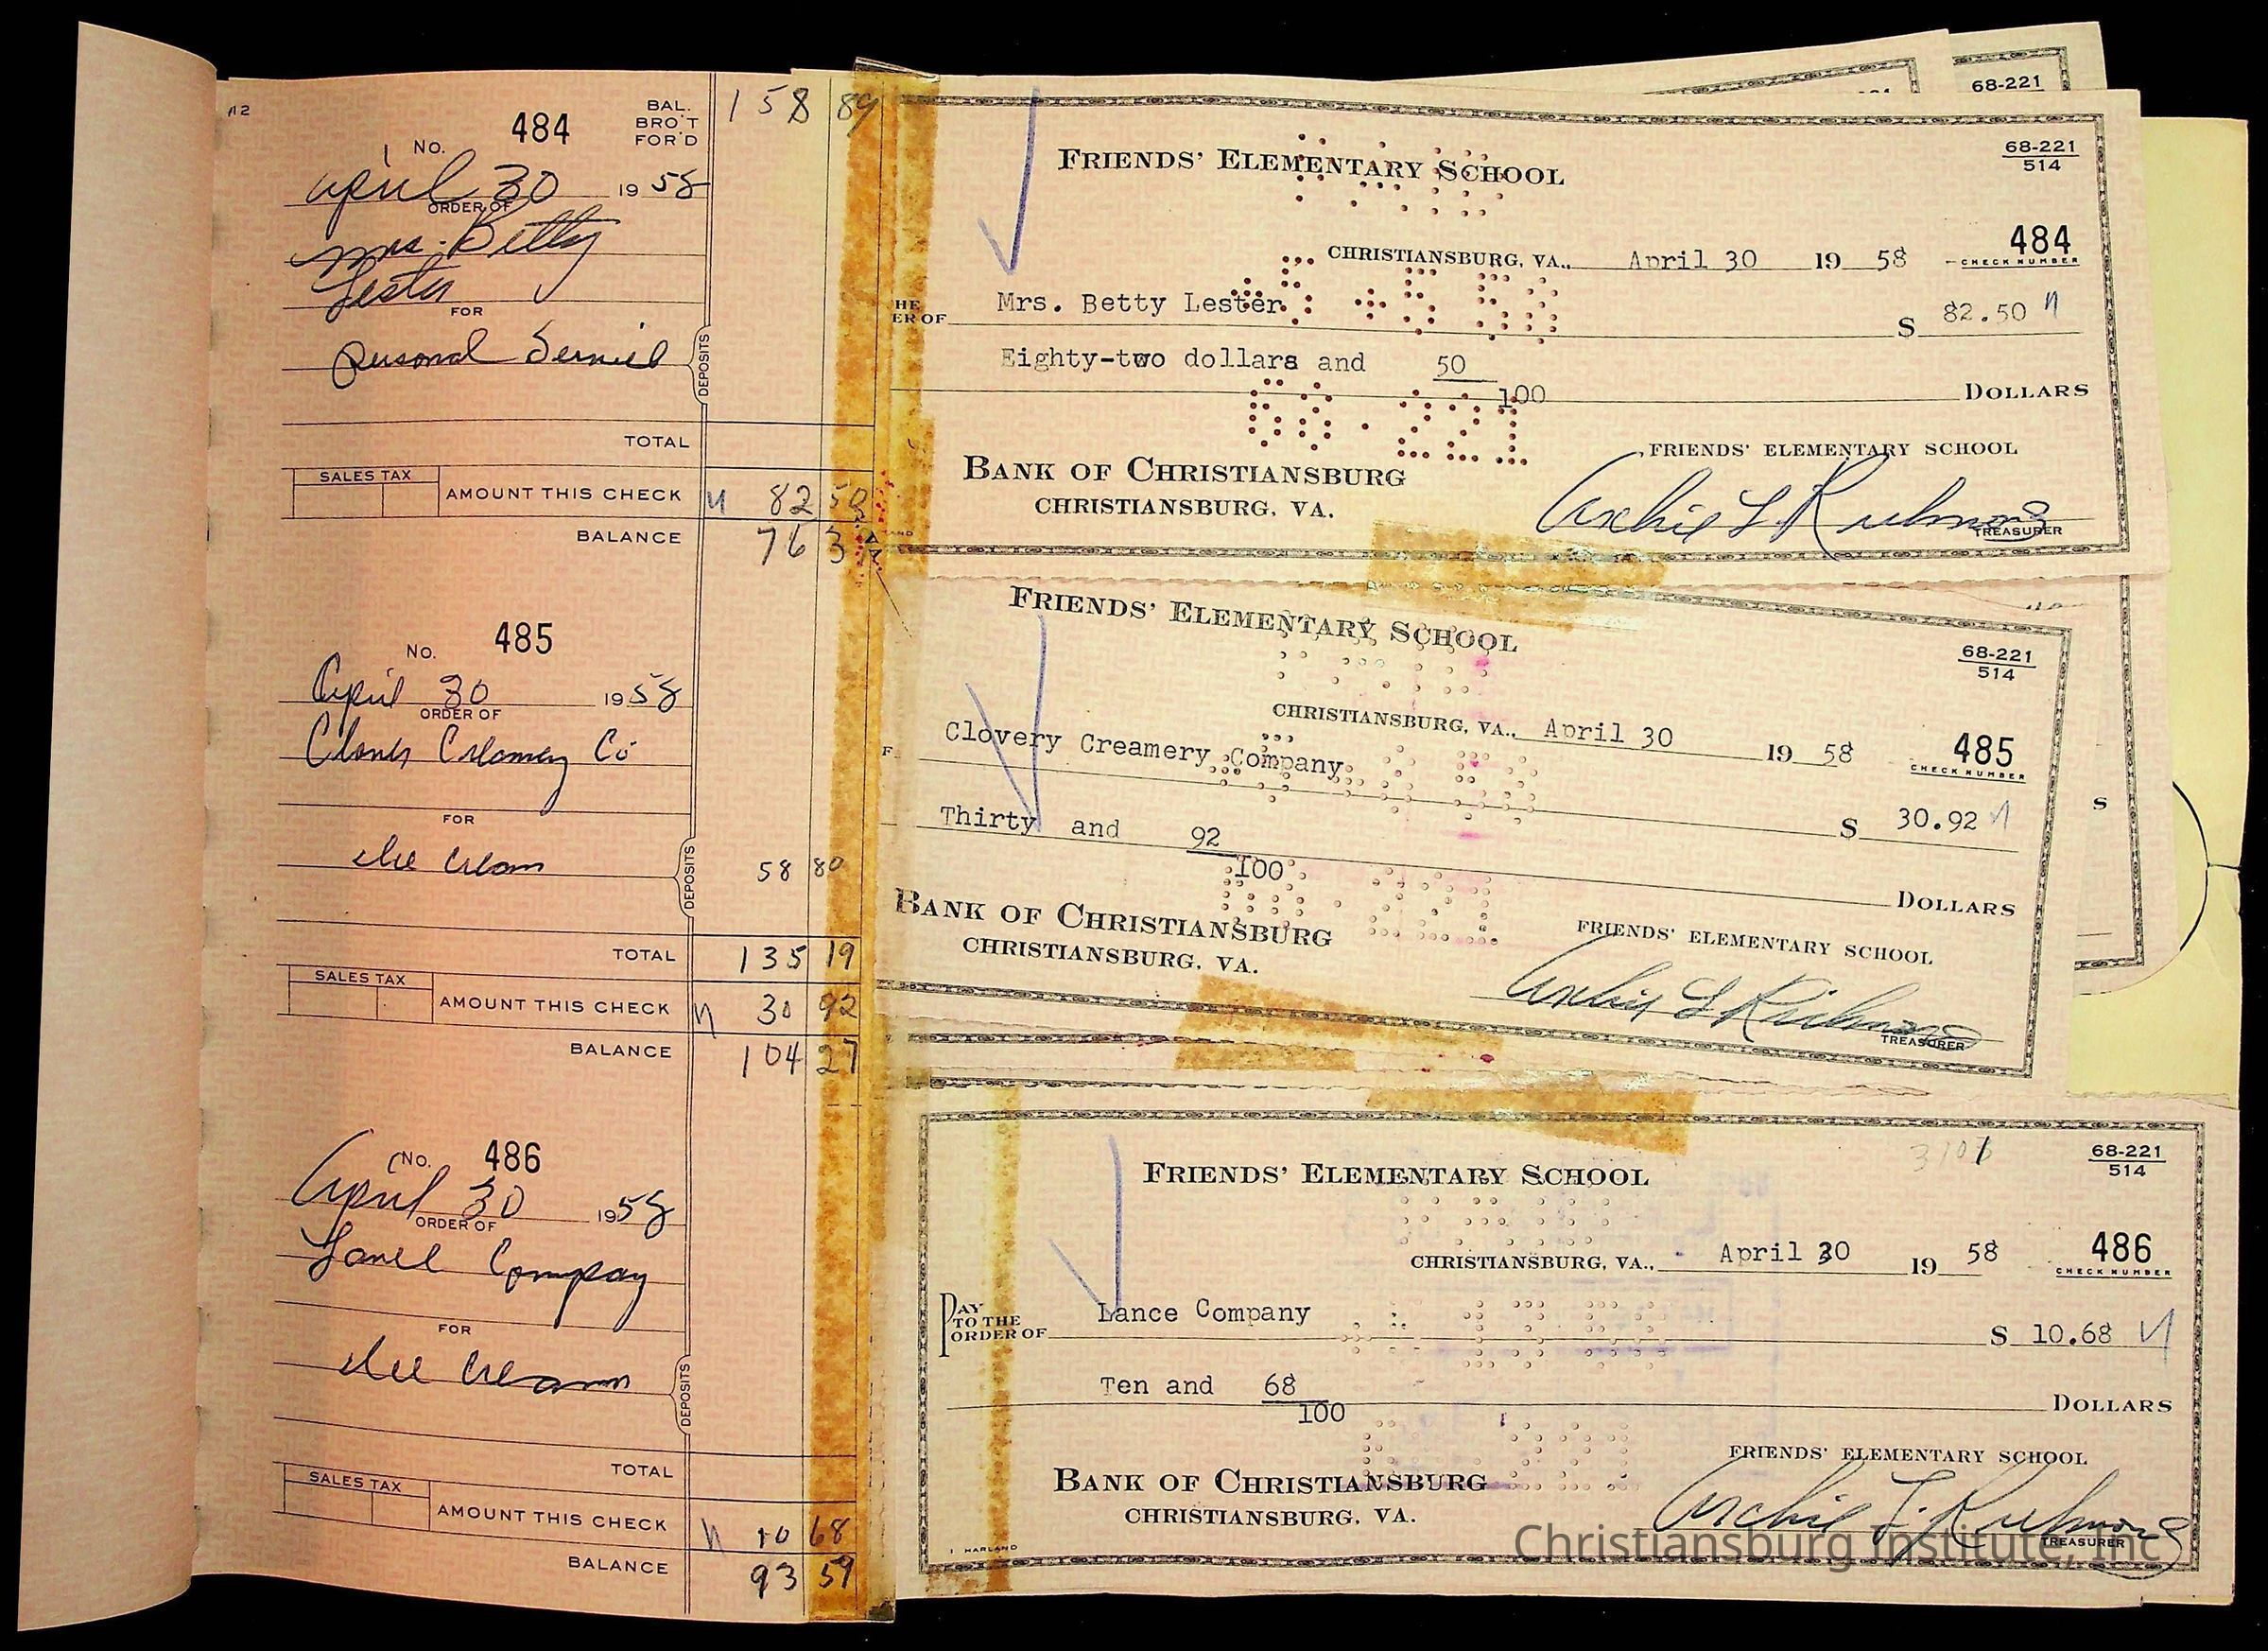 No. 484
BAL. BRO'T FOR'D 158 89
April 30 1958
ORDER OF
Mrs. Betty
Lester
FOR
personal Service
DEPOSITS
TOTAL
SALES TAX
AMOUNT THIS CHECK 82 50
BALANCE 76 3
No. 485
April 30 1958
ORDER OF
Clover Creamery Co
FOR
Ice Cream
DEPOSITS 58 80
TOTAL 135 19
SALES TAX
AMOUNT THIS CHECK 30 92
BALANCE 104 27
No. 486
April 30 1958
ORDER OF
Lance Company
FOR
Ice Cream
DEPOSITS
TOTAL
SALES TAX
AMOUNT THIS CHECK 10 68
BALANCE 93 59
68-221
FRIENDS' ELEMENTARY SCHOOL
68-221
514
CHRISTIANSBURG, VA., April 30 19 58
484
CHECK NUMBER
HE
ER OF Mrs. Betty Lester $ 82.50
Eighty-two dollars and 50/100 DOLLARS
68-221
BANK OF CHRISTIANSBURG
CHRISTIANSBURG, VA.
FRIENDS' ELEMENTARY SCHOOL
Archie L Richmond
TREASURER
FRIENDS' ELEMENTARY SCHOOL
68-221
514
CHRISTIANSBURG, VA., April 30 19 58
485
CHECK NUMBER
F Clovery Creamery Company
$ 30.92
Thirty and 92/100 DOLLARS
BANK OF CHRISTIANSBURG
CHRISTIANSBURG, VA.
FRIENDS' ELEMENTARY SCHOOL
Archie L Richmond
TREASURER
S
FRIENDS' ELEMENTARY SCHOOL
68-221
514
CHRISTIANSBURG, VA., April 30 19 58
486
CHECK NUMBER
PAY TO THE ORDER OF Lance Company $ 10.68
Ten and 68/100 DOLLARS
BANK OF CHRISTIANSBURG
CHRISTIANSBURG, VA.
FRIENDS' ELEMENTARY SCHOOL
Archie L. Richmond
TREASURER
HARLAND
Christiansburg Institute, Inc